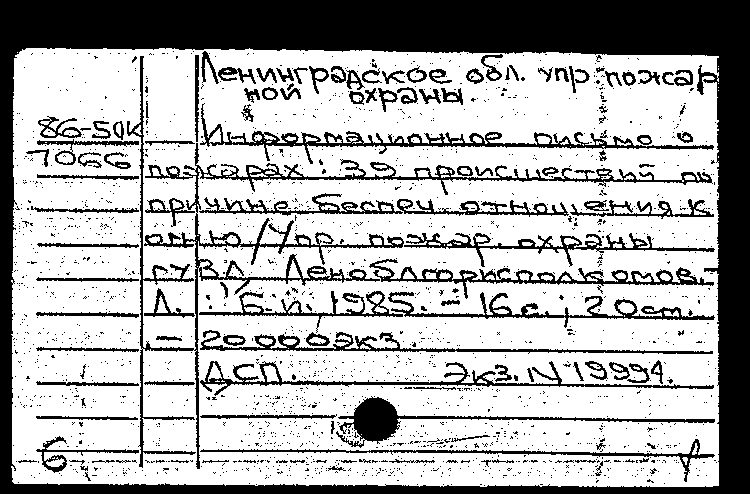 Ленинградское обл. упр пожар
ной охраны.
86-50к Информационное письмо о
7066 пожарах: 39 происшествий по
причине беспеч отношения к
огню / Упр. пожар. охраны
ГУВД Леноблгорисполкомов. -
Л. : Б.и., 1985. - 16 с.; 20 см.
. - 20000 экз.
ДСП. Экз. N 19994.
6